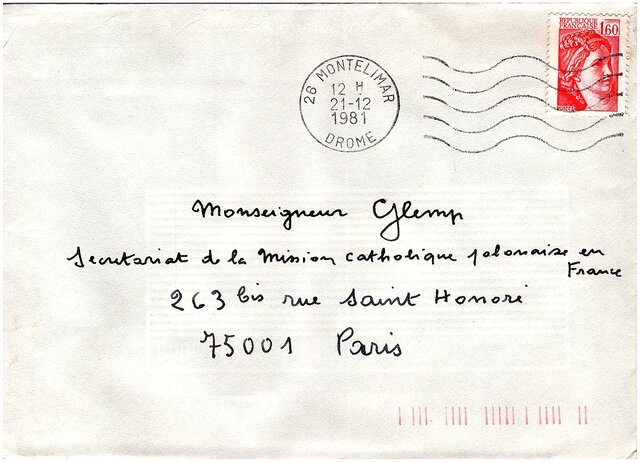 REPUBLIQUE
FRANÇAISE 1,60
26 MONTELIMAR
12 H
21-12
1981
DROME
Monseigneur Glemp
Secretariat de la Mission catholique polonaise en
France
263 bis rue Saint Honoré
75001 Paris